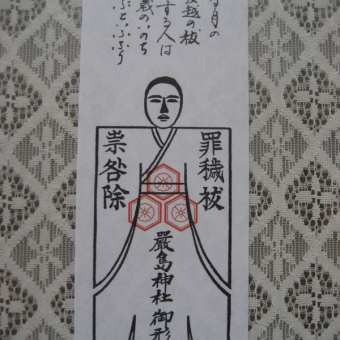 月の
越の祓
する人は
歳のいのち
ぶといふなり
罪穢祓
祟咎除
嚴島神社 御形